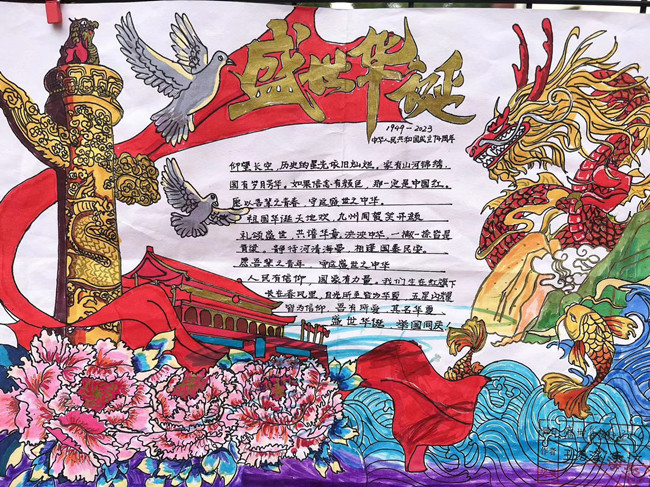 盛世华诞
1949-2023
中华人民共和国成立74周年
仰望长空，历史的星光依旧灿烂。家有山河锦绣，
国有岁月芳华，如果信念有颜色，那一定是中国红。
愿以吾辈之青春，守这盛世之中华。
祖国华诞天地欢，九州同贺笑开颜
礼颂盛世，共谱华章。泱泱中华，一撇一捺皆是
脊梁，静待河清海晏，相逢国泰民安。
愿吾辈之青年，守这盛世之中华
人民有信仰，国家有力量，我们生在红旗下
长在春风里，目光所至皆为华夏，五星闪耀
皆为信仰，吾有所爱，其名华夏
盛世华诞，举国同庆